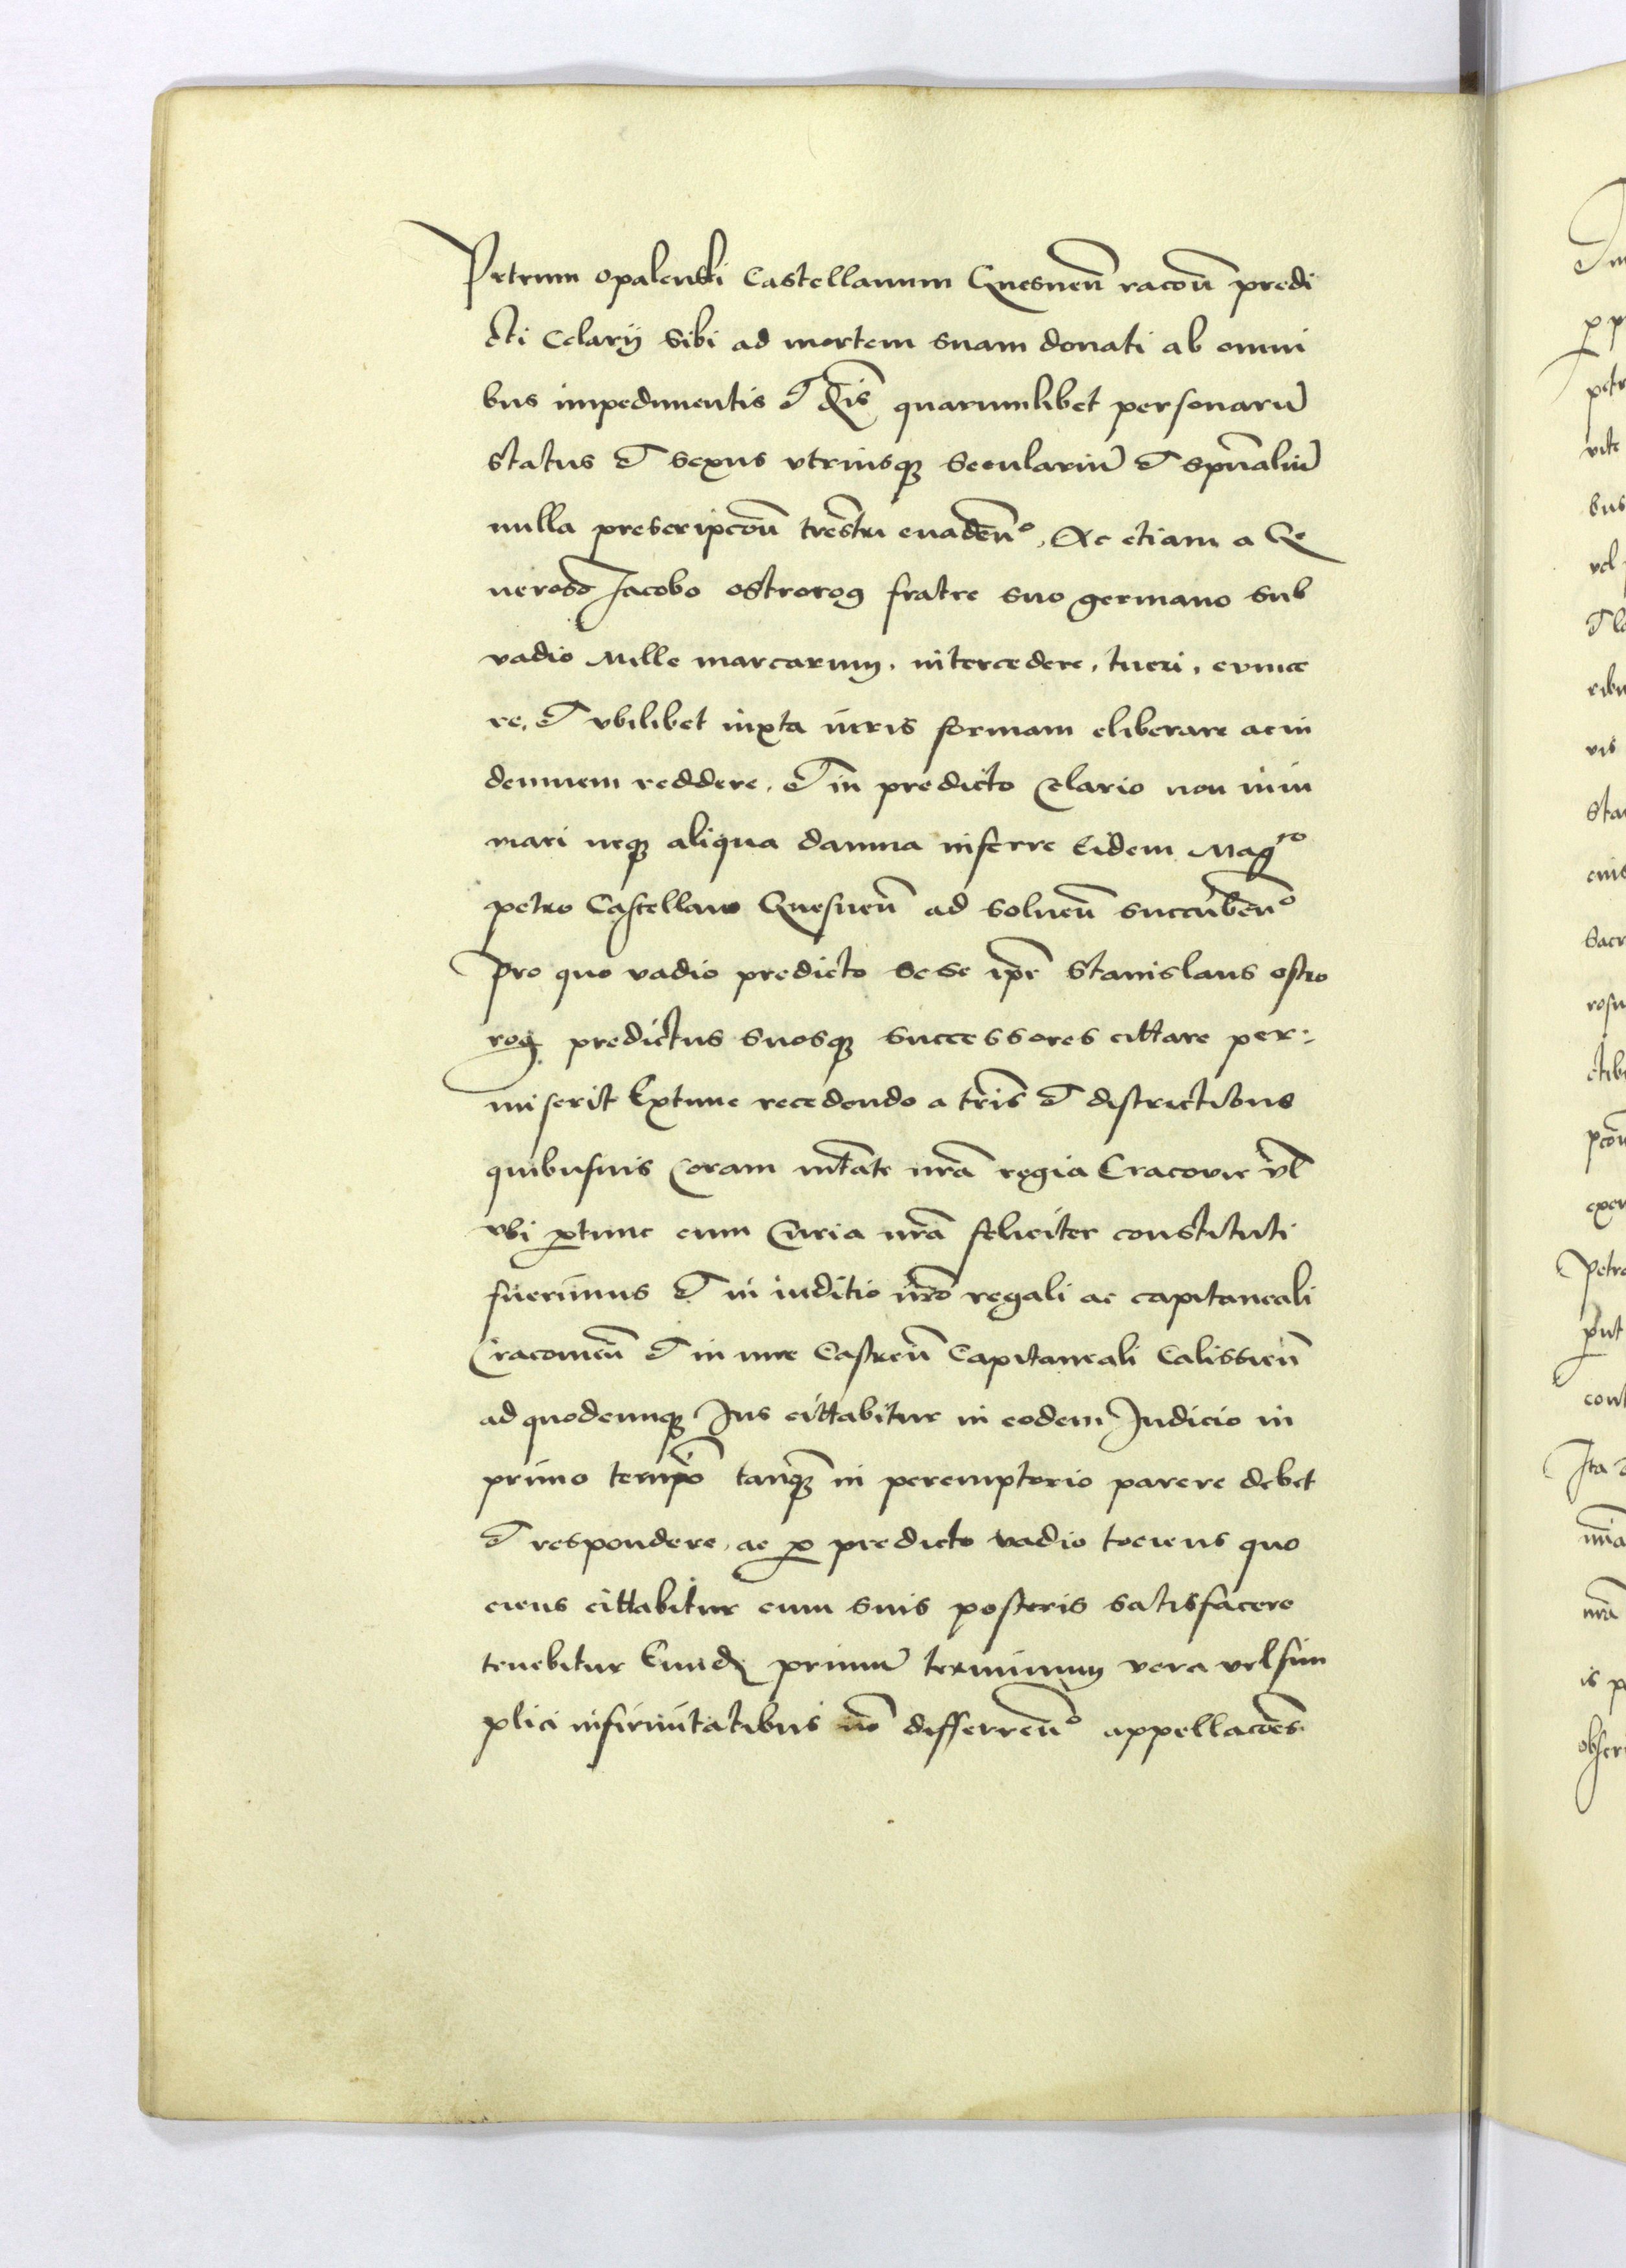 Petrum opalenski Castellanum Gnesneñ racoñ predi
cti Celarij sibi ad mortem suam donati ab omni
bus impedimentis et quarumlibet personarũ
status et sexus vtriusqꝫ Seculariũ et spũaliũ
nulla prescripcoñ trẽstri euadeñº. Ac etiam a Ge
neroso Jacobo ostrorog fratre suo germano sub
vadio Mille marcarum. intercedere. tueri. euince
re. et vbilibet iuxta iuris formam eliberare ac in
demnem reddere. et in predicto Celario non inin
mari neqꝫ aliqua damna inferre Eidem Magco
petro Castellano Gnesneñ ad solueñ succũbeñº
Pro quo vadio predicto sese ip̃e Stanislaus ostro
rog predictus suosqꝫ successores cittare per:
miserit Extunc recedendo a tr̃is et districtibus
quibusuis Coram mt̃ate nr̃a regia Cracovie vl̃
vbi ꝑtunc cum Curia nr̃a feliciter constituti
fuerimus et in iuditio nr̃o regali ac capitaneali
Cracouieñ et in iure Castreñ Capitaneali Calissieñ
ad quodcunqꝫ Jus cittabitur in eodem Judicio in
primo termĩo tanqꝫ in peremptorio parere debet
et respondere. ac ꝓ predicto vadio tociens quo
ciens cittabitur cum suis posteris satisfacere
tenebitur Eundẽ primũ terminum vera vel sim
plici infirmitatibus nõ differreñº appellacões.